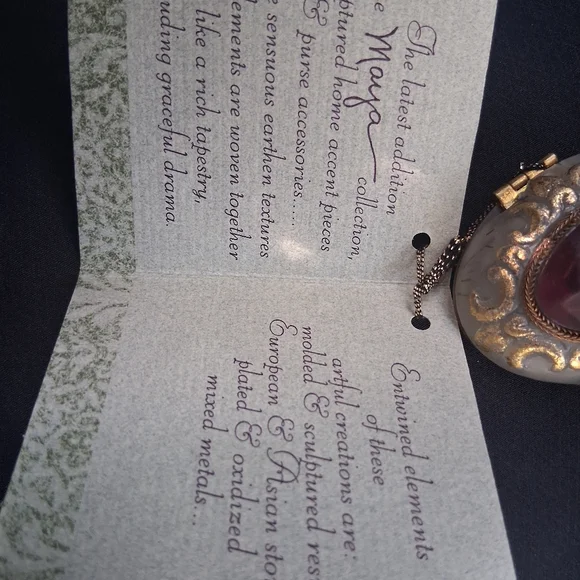 The latest addition
e Maya collection,
ptured home accent pieces
& purse accessories.....
e sensuous earthen textures
ements are woven together
like a rich tapestry,
uding graceful drama.
Entwined elements
of these
artful creations are:
molded & sculptured res
European & Asian sto
plated & oxidized
mixed metals...